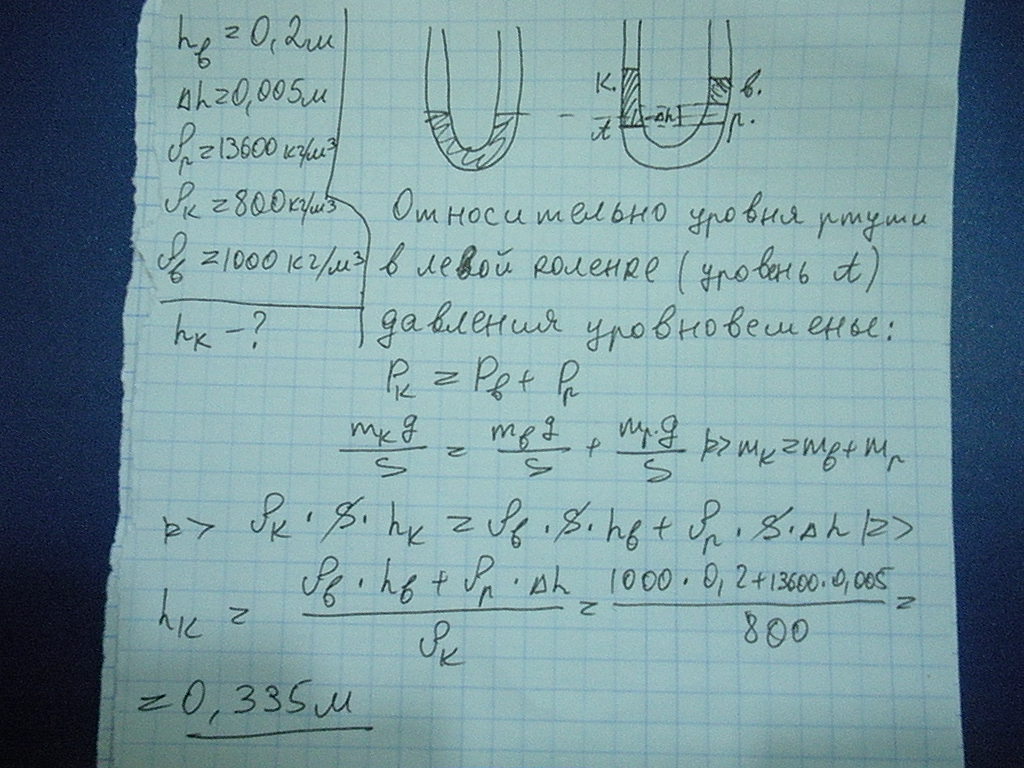 hв = 0,2м
Δh = 0,005м
ρр = 13600 кг/м³
ρк = 800 кг/м³
ρв = 1000 кг/м³
hк - ?
к. в.
A Δh р.
Относительно уровня ртути
в левой коленке (уровень A)
давления уровновешены:
Pк = Pв + Pр
mкg/S = mвg/S + mр·g/S |=> mк = mв + mр
=> ρк · S · hк = ρв · S · hв + ρр · S · Δh |=>
hк = (ρв · hв + ρр · Δh)/ρк = (1000 · 0,2 + 13600 · 0,005)/800 =
= 0,335м